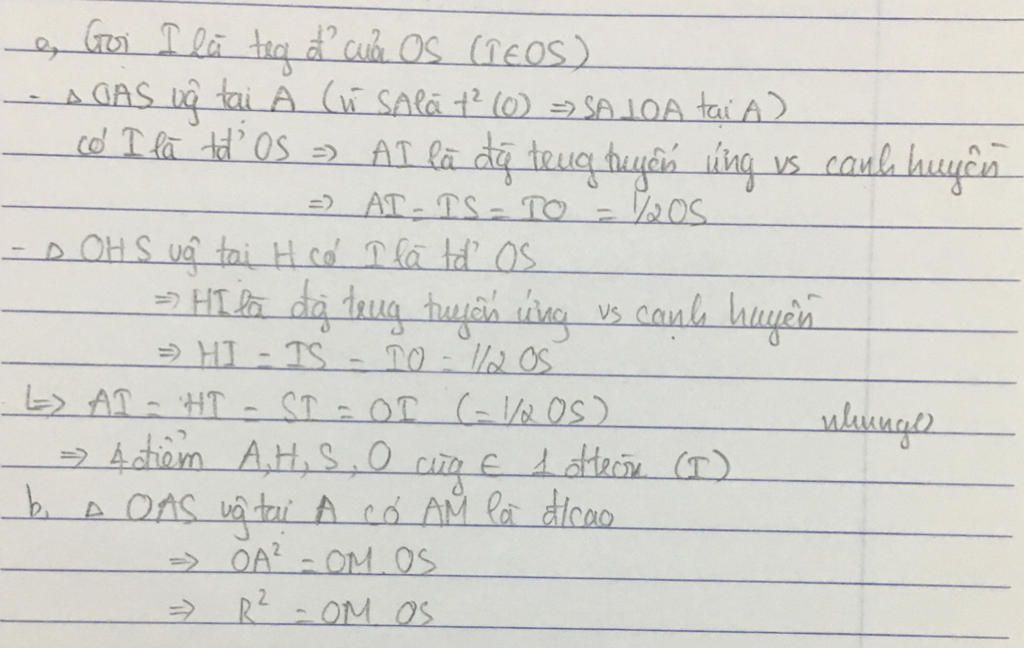 a, Gọi I là trg đ' của OS (I∈OS)
- △ OAS vg tại A (vì SA là t² (O) ⇒ SA⊥OA tại A)
có I là tđ' OS ⇒ AI là đg trung tuyến ứng vs cạnh huyền
⇒ AI = IS = IO = 1/2 OS
- △ OHS vg tại H có I là tđ' OS
⇒ HI là đg trung tuyến ứng vs cạnh huyền
⇒ HI = IS = IO = 1/2 OS
↳ AI = HI = SI = OI (= 1/2 OS)
nhung
⇒ 4 điểm A, H, S, O cùng ∈ 1 đtròn (I)
b, △ OAS vg tại A có AM là đ/cao
⇒ OA² = OM. OS
⇒ R² = OM. OS